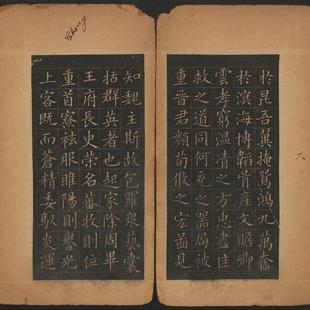 於昆吾翼掩鴛鴻九萬奮
於溟海博韜骨産文贍卿
雲孝窮温清之方忠盡匡
救之道同何充之器局被
重晉君類荀攸之宏圖見
知魏主斯故包羅衆藝囊
括群英者也起家除周畢
王府長史榮名蕃牧則位
重首寮袪服睢陽則譽光
上客既而蒼精委馭炎運